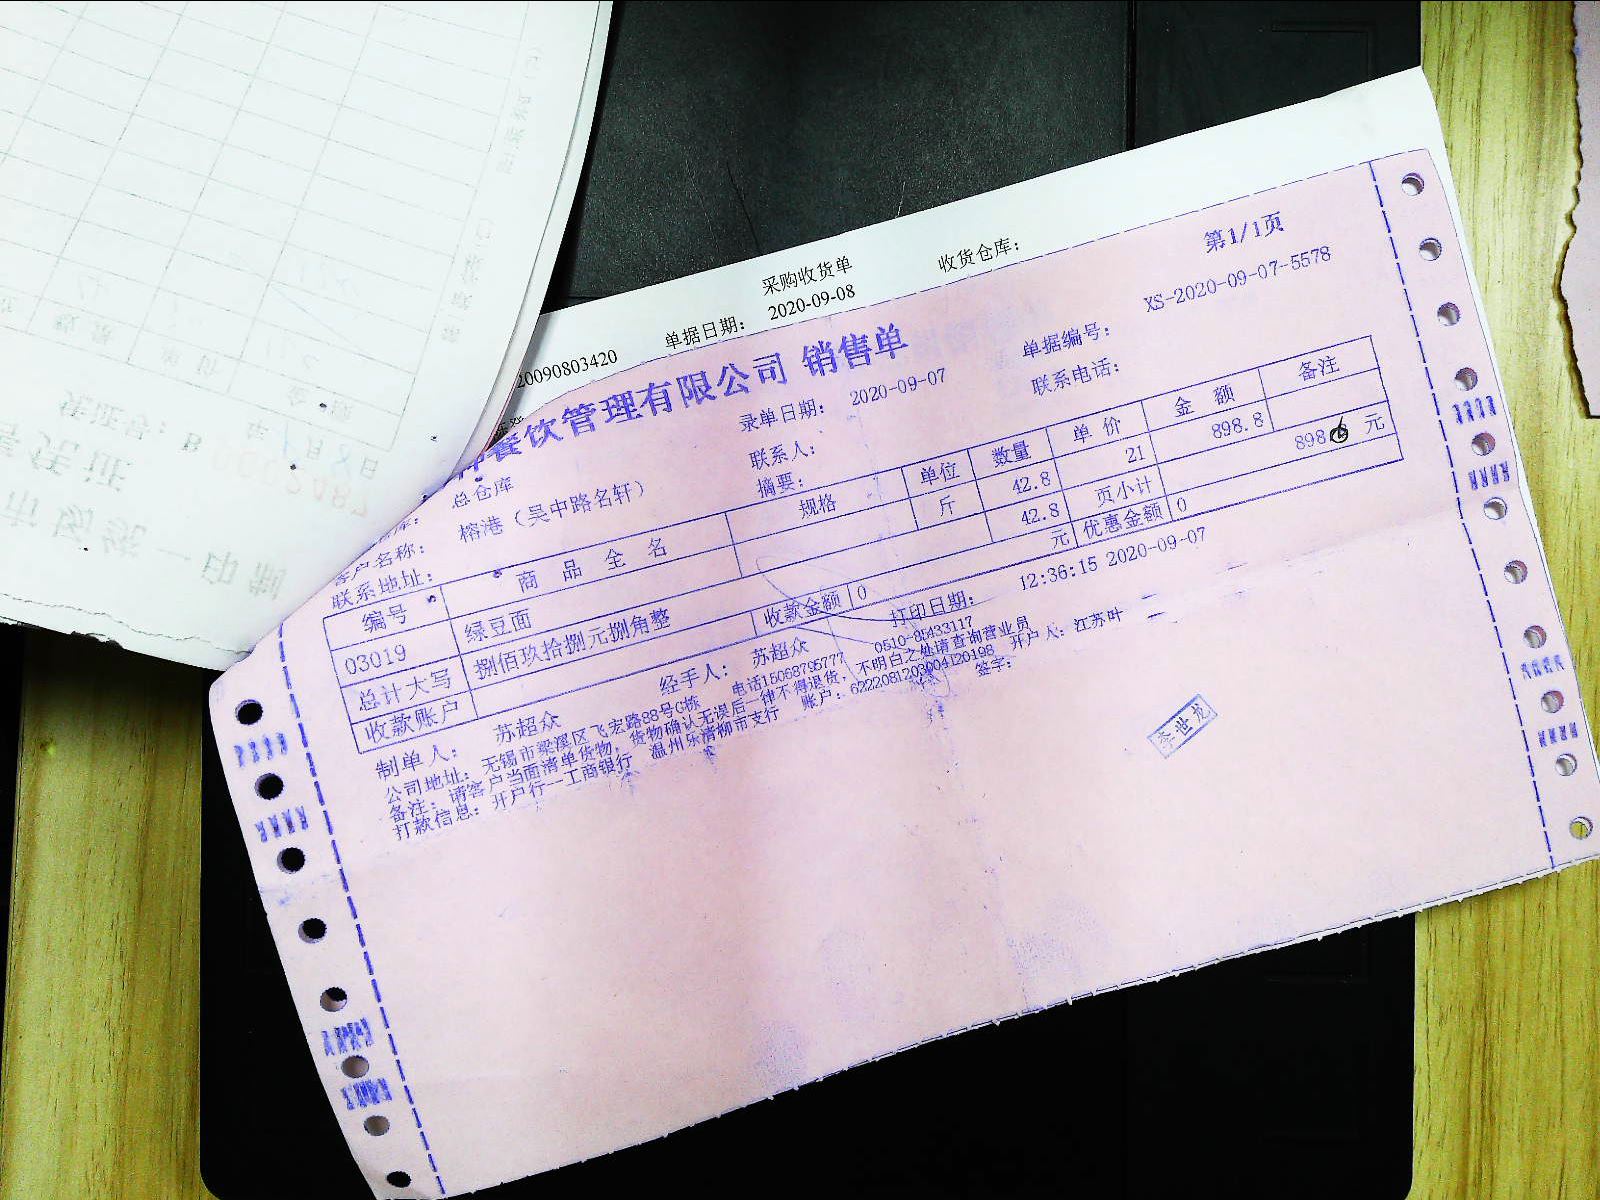 采购收货单
收货仓库：
20090803420
单据日期：
2020-09-08
第1/1页
餐饮管理有限公司 销售单
单据编号：
XS-2020-09-07-5578
录单日期：
2020-09-07
联系电话：
总仓库
联系人：
客户名称：
榕港（吴中路名轩）
摘要：
联系地址：
编号 商品全名 规格 单位 数量 单价 金额 备注
03019 绿豆面 斤 42.8 21 898.8
42.8 页小计 898. 元
总计大写 捌佰玖拾捌元捌角整 元 优惠金额 0
收款账户 收款金额 0
制单人： 苏超众 经手人： 苏超众 打印日期： 12:36:15 2020-09-07
公司地址： 无锡市梁溪区飞宏路88号G栋 电话15068795777 0510-85433117
备注：请客户当面清单货物，货物确认无误后一律不得退货，不明白之处请查询营业员
打款信息：开户行一工商银行 温州乐清柳市支行 账户：6222081203004120198 开户人：江苏叶
签字：
李世龙